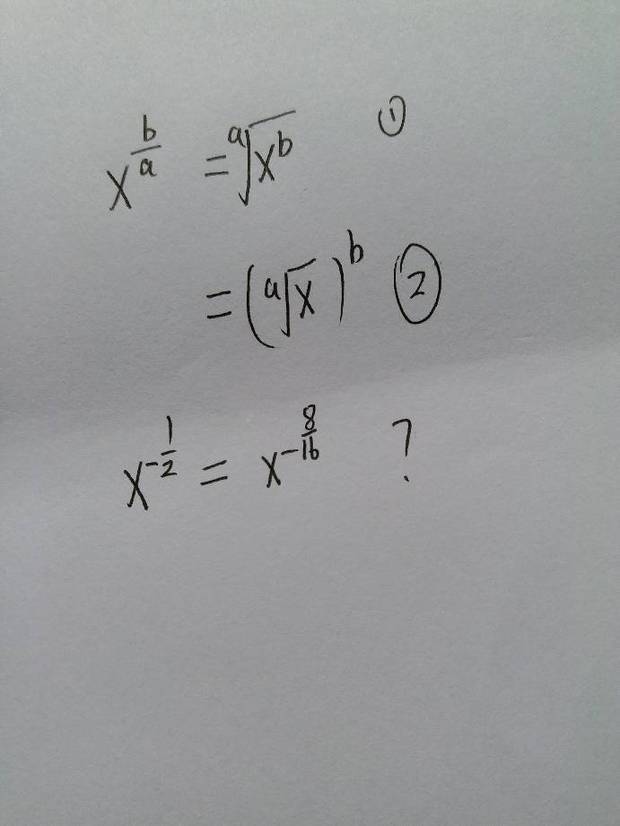 x^{\frac{b}{a}} = \sqrt[a]{x^b} ①
= (\sqrt[a]{x})^b ②
x^{-\frac{1}{2}} = x^{-\frac{8}{16}} ?